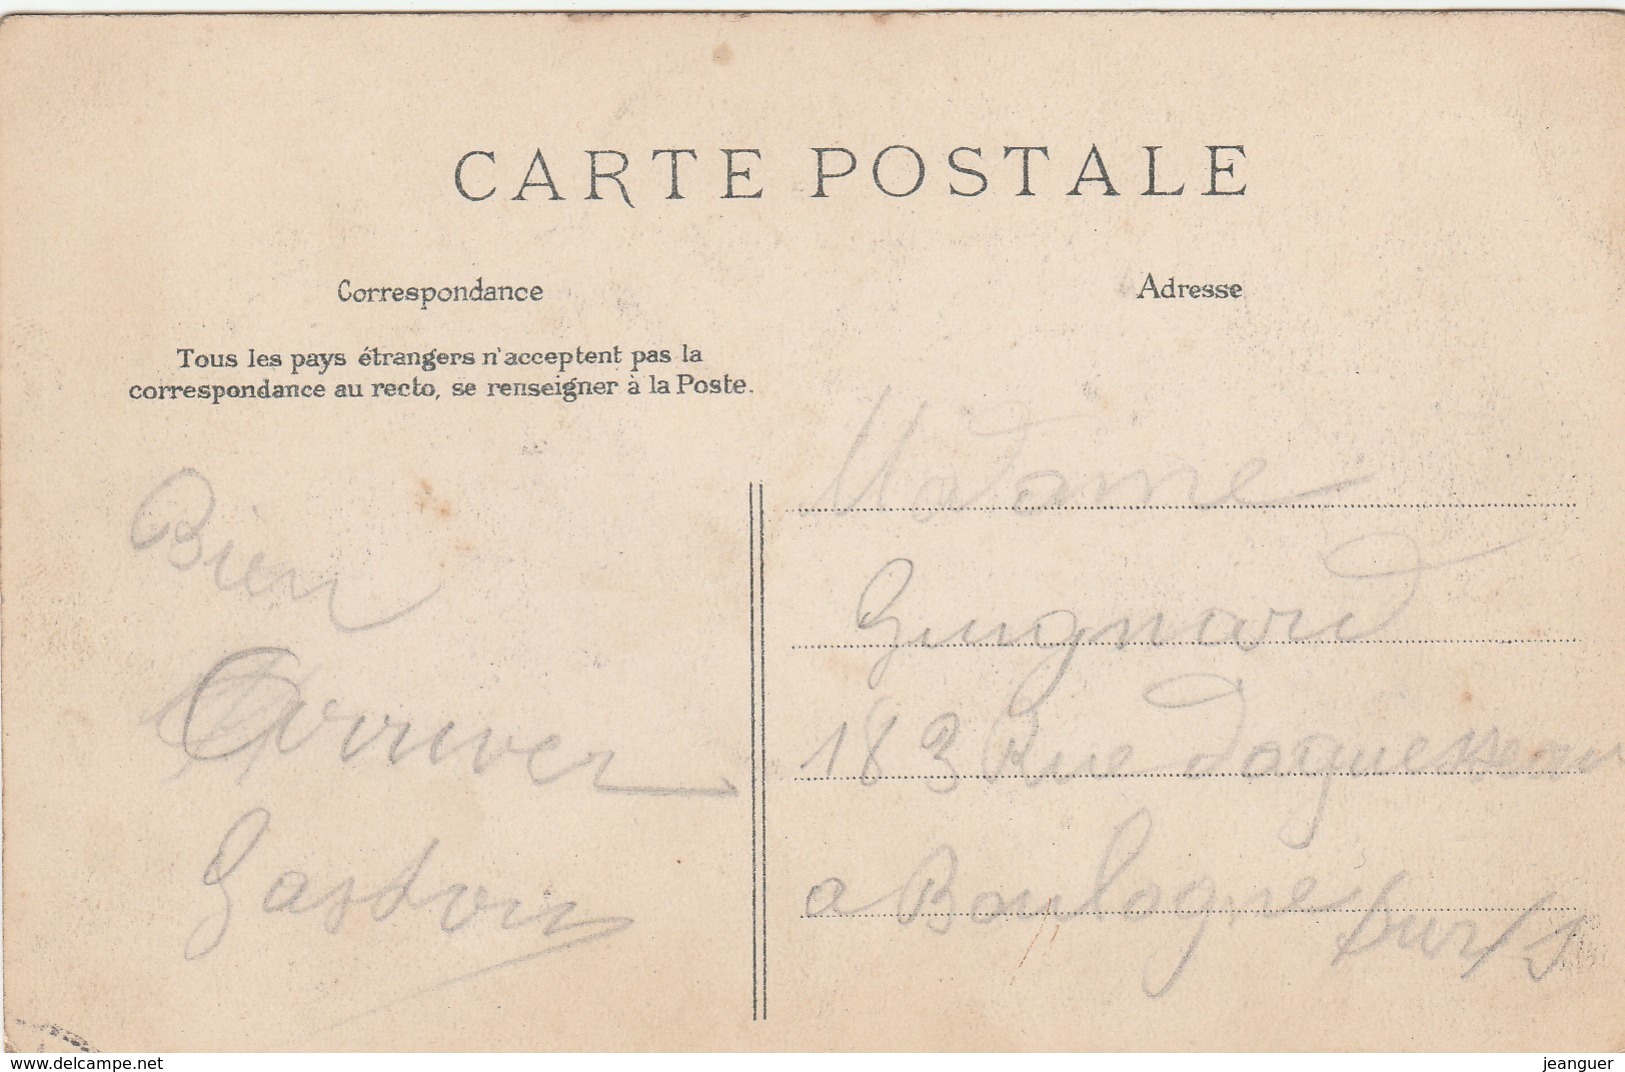 CARTE POSTALE
Correspondance
Adresse
Tous les pays étrangers n'acceptent pas la
correspondance au recto, se renseigner à la Poste.
Bien
Arriver
Gaston
Madame
Guignard
183 Rue Daguesseau
a Boulogne sur/S
www.delcampe.net
jeanguer